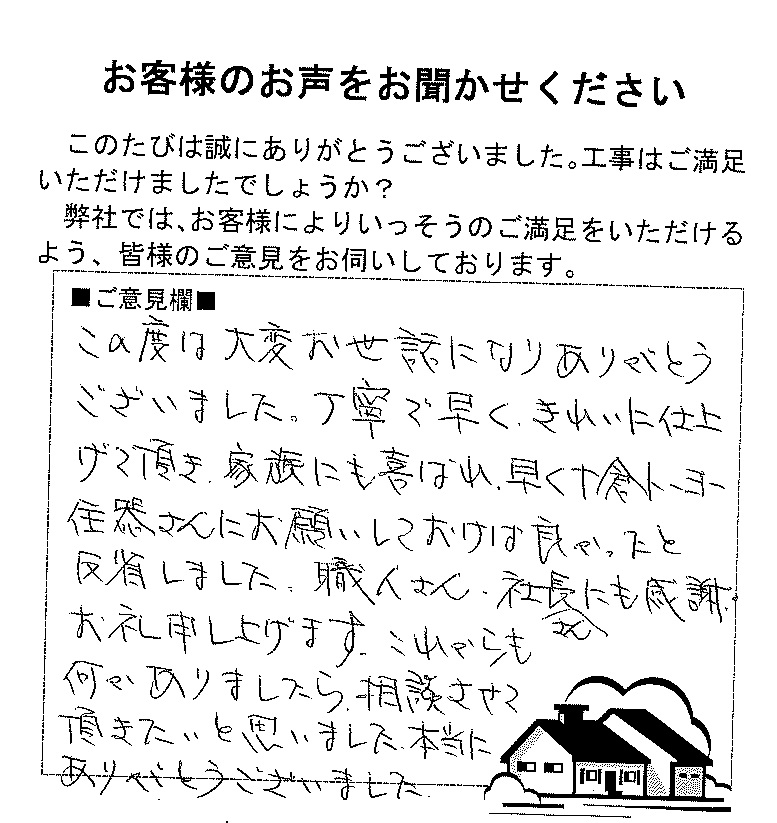 お客様のお声をお聞かせください
このたびは誠にありがとうございました。工事はご満足
いただけましたでしょうか？
弊社では、お客様によりいっそうのご満足をいただける
よう、皆様のご意見をお伺いしております。
■ご意見欄■
この度は大変お世話になりありがとう
ございました。丁寧で早く、きれいに仕上
げて頂き、家族にも喜ばれ、早く十倉トーヨー
住器さんにお願いしておけば良かったと
反省しました。職人さん、社長さんにも感謝、
お礼申し上げます。これからも
何かありましたら、相談させて
頂きたいと思いました。本当に
ありがとうございました。